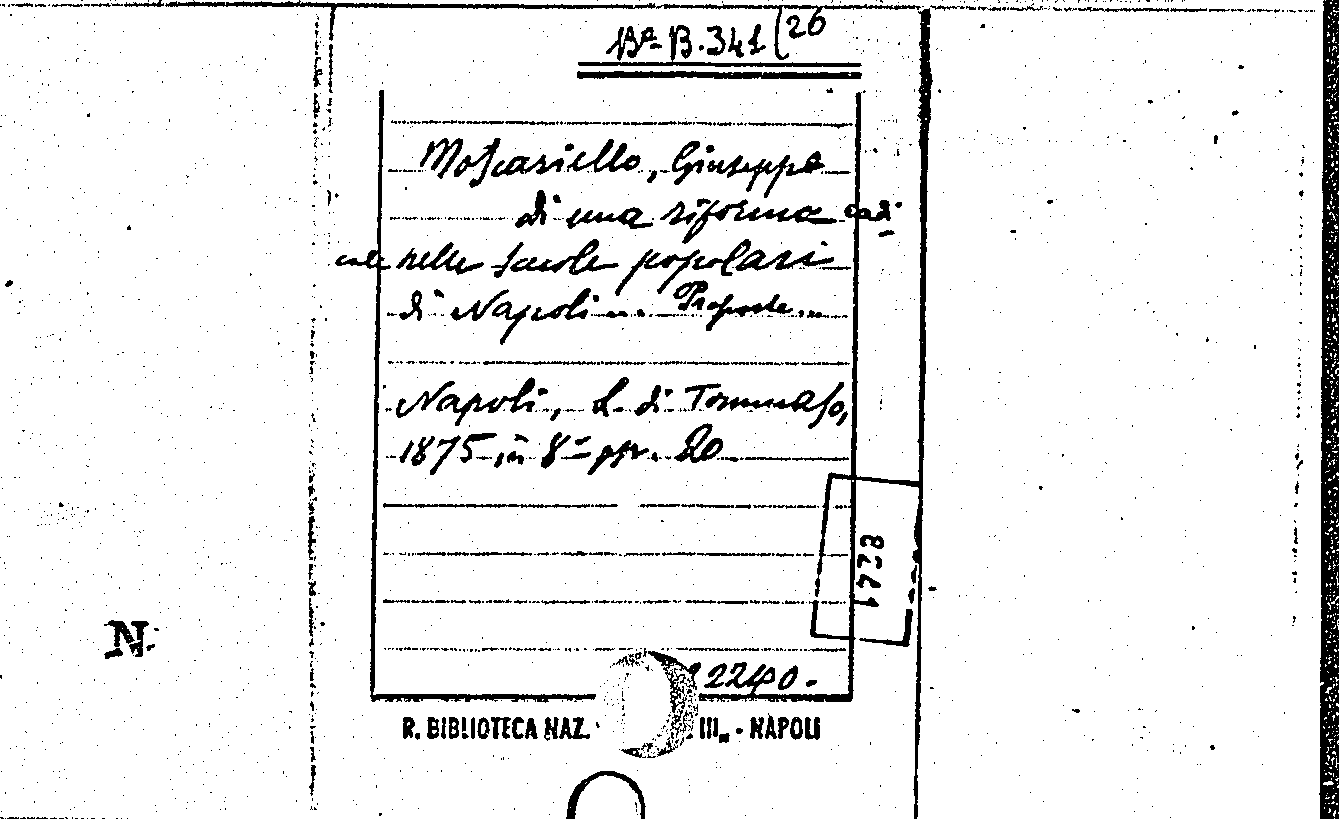 Bª B.341(26
Moscariello, Giuseppe
di una riforma radi
cale nelle scuole popolari
di Napoli ... Proposte...
Napoli, L. di Tommaso,
1875, in 8º pp. 20
8221
2240.
N.
R. BIBLIOTECA NAZ. III„ - NAPOLI